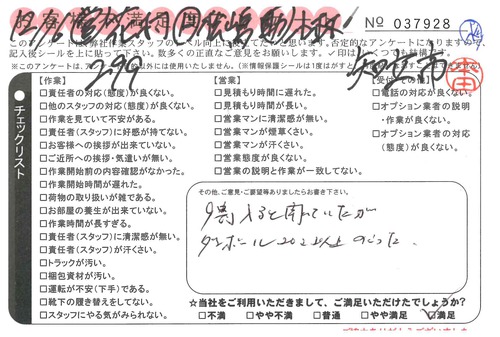 No 037928
このアンケートは、弊社作業スタッフのレベル向上に役立てたいと思います。否定的なアンケートになりますので、
記入後シールを上に貼って下さい。数多くの正直なご意見をお願いします。✓印はいくつでも結構です。
【作業】
□責任者の対応(態度)が良くない。
□他のスタッフの対応(態度)が良くない。
□作業を見ていて不安がある。
□責任者(スタッフ)に好感が持てない。
□お客様への挨拶が出来ていない。
□ご近所への挨拶・気遣いが無い。
□作業開始前の内容確認がなかった。
□作業開始時間が遅れた。
□荷物の取り扱いが雑である。
□お部屋の養生が出来ていない。
□作業時間が長すぎる。
□責任者(スタッフ)に清潔感が無い。
□責任者(スタッフ)が汗くさい。
□トラックが汚い。
□梱包資材が汚い。
□運転が不安(下手)である。
□靴下の履き替えをしてない。
□スタッフにやる気がみられない。
【営業】
□見積もり時間に遅れた。
□見積もり時間が長い。
□営業マンに清潔感が無い。
□営業マンが煙草くさい。
□営業マンが汗くさい。
□営業態度が良くない。
□営業の説明と作業が一致してない。
□電話の対応が良くない。
□オプション業者の説明
・作業が良くない。
□オプション業者の対応
(態度)が良くない。
チェックリスト
その他、ご意見・ご要望等ありましたらお書き下さい。
ダンボール20コ以上のこった。
☆当社をご利用いただきまして、ご満足いただけたでしょうか?
□不満 □やや不満 □普通 □やや満足 ☑満足